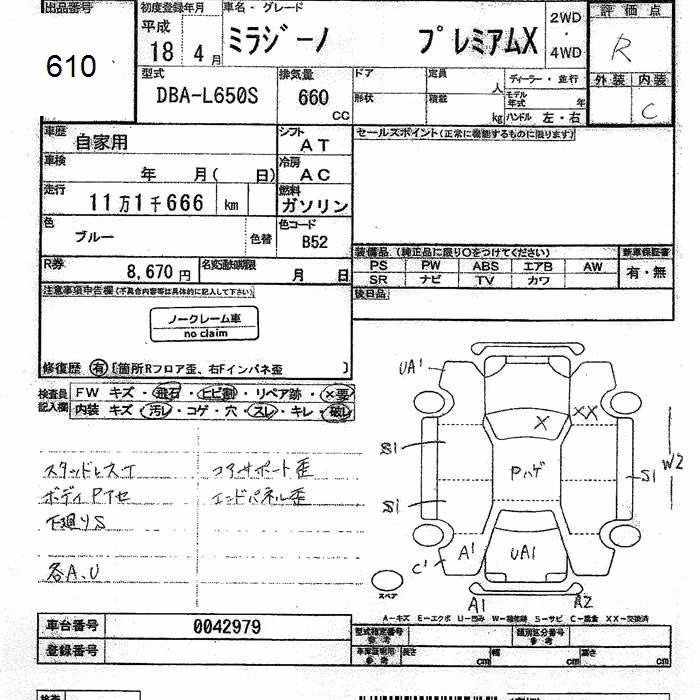 出品番号 初度登録年月 車名・グレード 2WD 評価点
610 平成 18 4月 ミラジーノ プレミアムX ・ 4WD R
型式 排気量 ドア 定員 人 ディーラー・並行 外装 内装
DBA-L650S 660 CC 形状 積載 kg モデル年式 年 C
ハンドル 左・右
車歴 自家用 シフト AT セールスポイント(正常に機能するものに限ります)
車検 年 月( 日) 冷房 AC
走行 11万1千666 km 燃料 ガソリン
色 ブルー 色替 色コード B52
装備品 (純正品に限り○をつけてください) 新車保証書
R券 8,670円 名変通知期限 月 日 PS PW ABS エアB AW 有・無
SR ナビ TV カワ
注意事項申告欄(不具合内容等は具体的に記入して下さい) 後日品
ノークレーム車
no claim
修復歴 有 [箇所Rフロア歪、右Fインパネ歪 ]
検査員 FW キズ・飛石・ヒビ割・リペア跡・×要
記入欄 内装 キズ・汚レ・コゲ・穴・スレ・キレ・破レ
UA1
X XX
S1 S1 W2
Pハゲ
S1
スタッドレスT コアサポート歪
ボディPアセ エンドパネル歪
下廻りS
各A、U
A1 UA1
C1
スペア
A1 A2
A－キズ E－エクボ U－凹み W－補修跡 S－サビ C－腐食 XX－交換済
車台番号 0042979 型式指定番号 参考 類別区分番号 参考
登録番号 車庫証明用 参考 長さ cm 幅 cm 高さ cm
検査